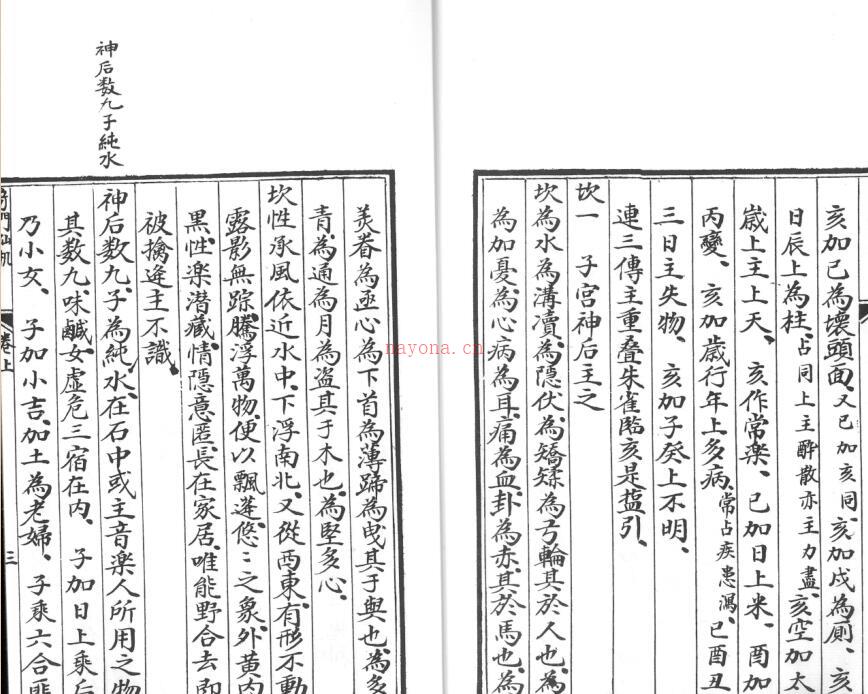 亥加巳為壞頭面、又巳加亥同、亥加戌為廁、亥
日辰上為柱、占同上主醉散亦主力盡、亥空加太
歲上主上天、亥作常樂、巳加日上米、酉加
丙變、亥加歲行年上多病、常占疾患瀉、巳酉丑
三日主失物、亥加子癸上不明、
連三傳主重叠朱雀臨亥是盐引、
坎一 子宮神后主之
坎為水、為溝瀆、為隱伏、為矯輮、為弓輪、其於人也、為
為加憂、為心病、為耳痛、為血卦、為赤、其於馬也、為
美脊、為亟心、為下首、為薄蹄、為曳、其于輿也、為多
青、為通、為月、為盗、其于木也、為堅多心、
坎性承風、依近水中、下浮南北、又從西東、有形不動
露影無踪、騰浮萬物、便以飄逢、悠々之象、外黄内
黑、性樂潜藏、情隱意匿、長在家居、唯能野合、去即
被擒、逄主不識、
神后数九子純水
神后数九、子為純水、在石中或主音樂人所用之物
其数九、味鹹、女虛危三宿在内、子加日上乘后
乃小女、子加小吉、加土為老婦、子乘六合匪
奇門仙机
卷上
三
nayona.cn